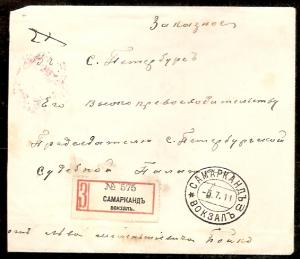 Заказное
Въ С. Петербургъ
Его Высокопревосходительству
Председателю С. Петербургской
Судебной Палаты
З
№ 575
САМАРКАНДЪ
ВОКЗАЛЪ.
САМАРКАНДЪ
-8.7.11
ВОКЗАЛЪ
Льва